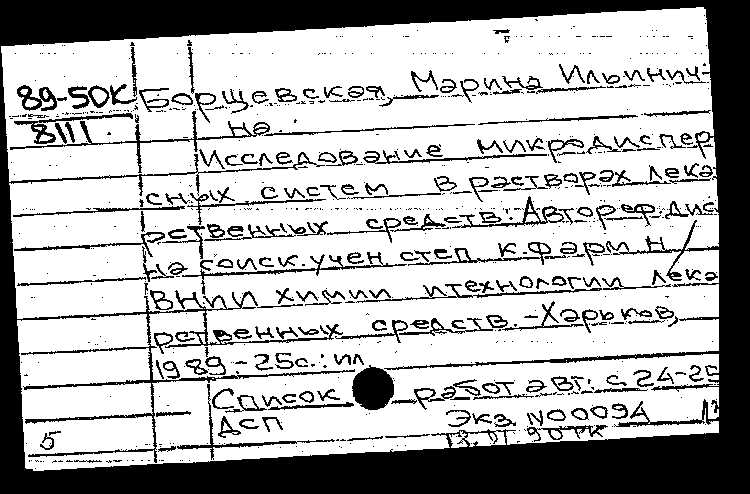 89-50К Борщевская, Марина Ильинич-
8111 на.
Исследование микродиспер
сных систем в растворах лека
рственных средств: Автореф. дис
на соиск. учен. степ. к. фарм. н /
ВНИИ химии и технологии лека
рственных средств. - Харьков,
1989. - 25с.: ил
Список работ авт.: с. 24-25
ДСП Экз. N00094
5